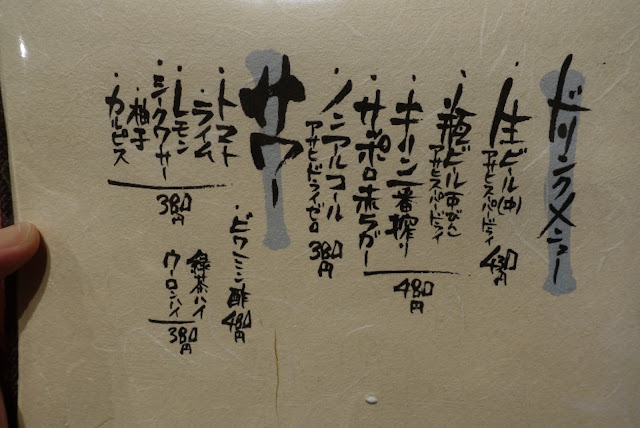 ドリンクメニュー
・生ビール(中)
アサヒスーパードライ
430円
・瓶ビール中びん
アサヒスーパードライ
・キリン一番搾り
・サッポロ赤ラガー
480円
・ノンアルコール
アサヒドライゼロ
380円
サワー
・トマト
・ライム
・レモン
・シークワーサー
・柚子
・カルピス
380円
・ビタミン酢
480円
緑茶ハイ
ウーロンハイ
380円